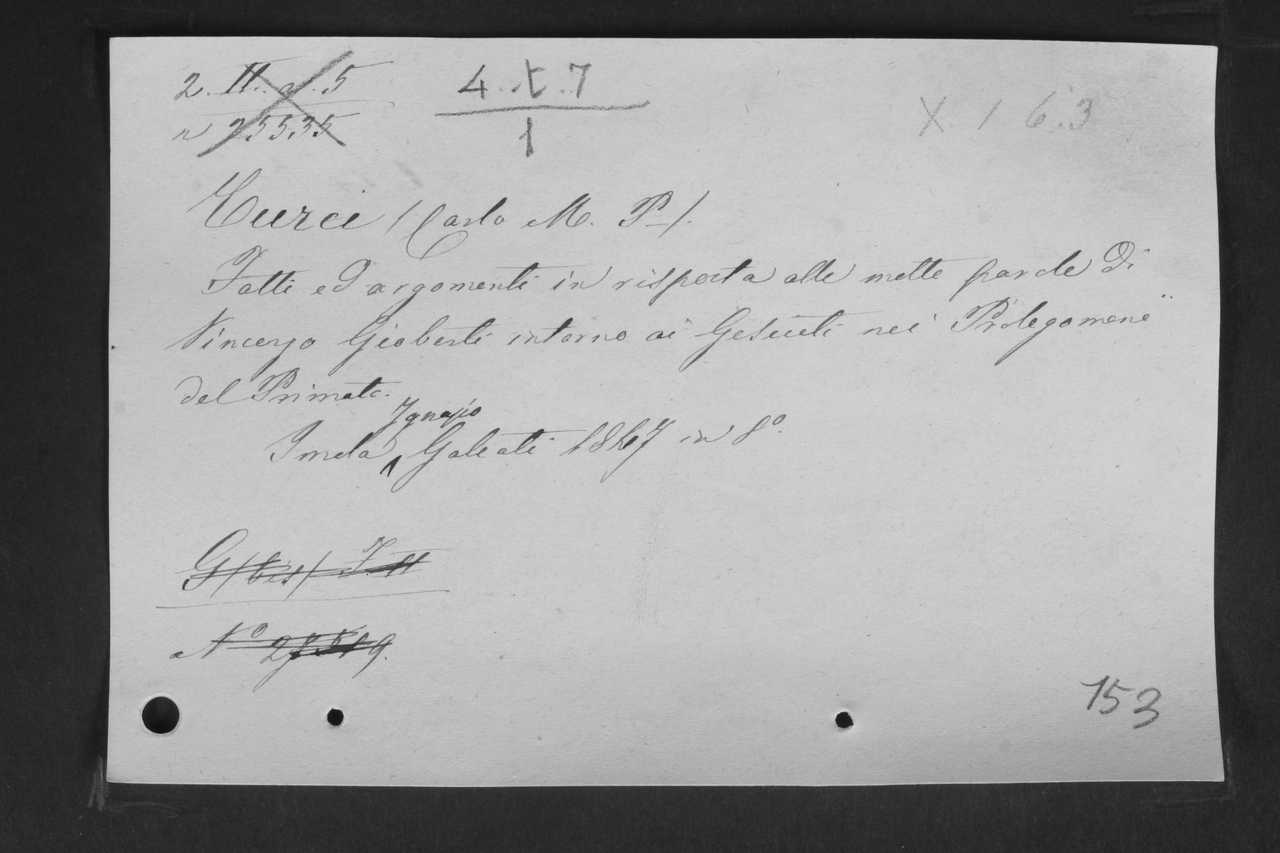 2. H. n. 5
4..t..7
n 25535
1
X 1 6.3
Curci (Carlo M. P_).
Fatti ed argomenti in risposta alle molte parole di
Vincenzo Gioberti intorno ai Gesuiti nei Prolegomeni
del Primato.
Ignazio
Imola Galeati 1847 in 8°.
G (bis) I. H
N° 27519.
153